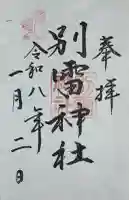 奉拝
別雷神社
令和八年
一月二日